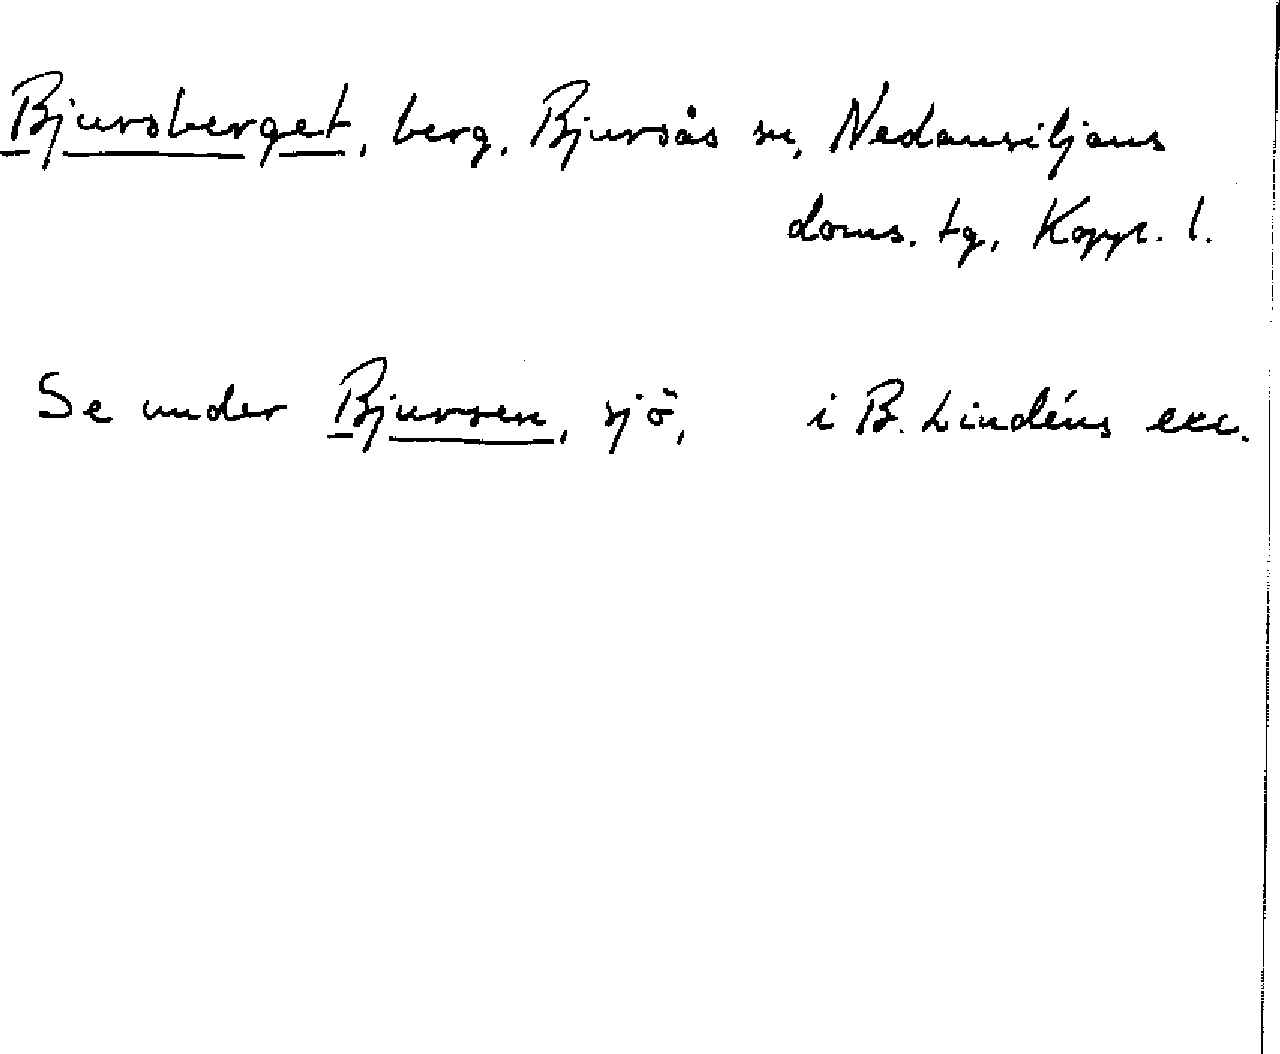 Bjursberget, berg, Bjursås sn, Nedansiljans
doms. tg, Kopp. l.
Se under Bjursen, sjö, i B. Lindéns exc.